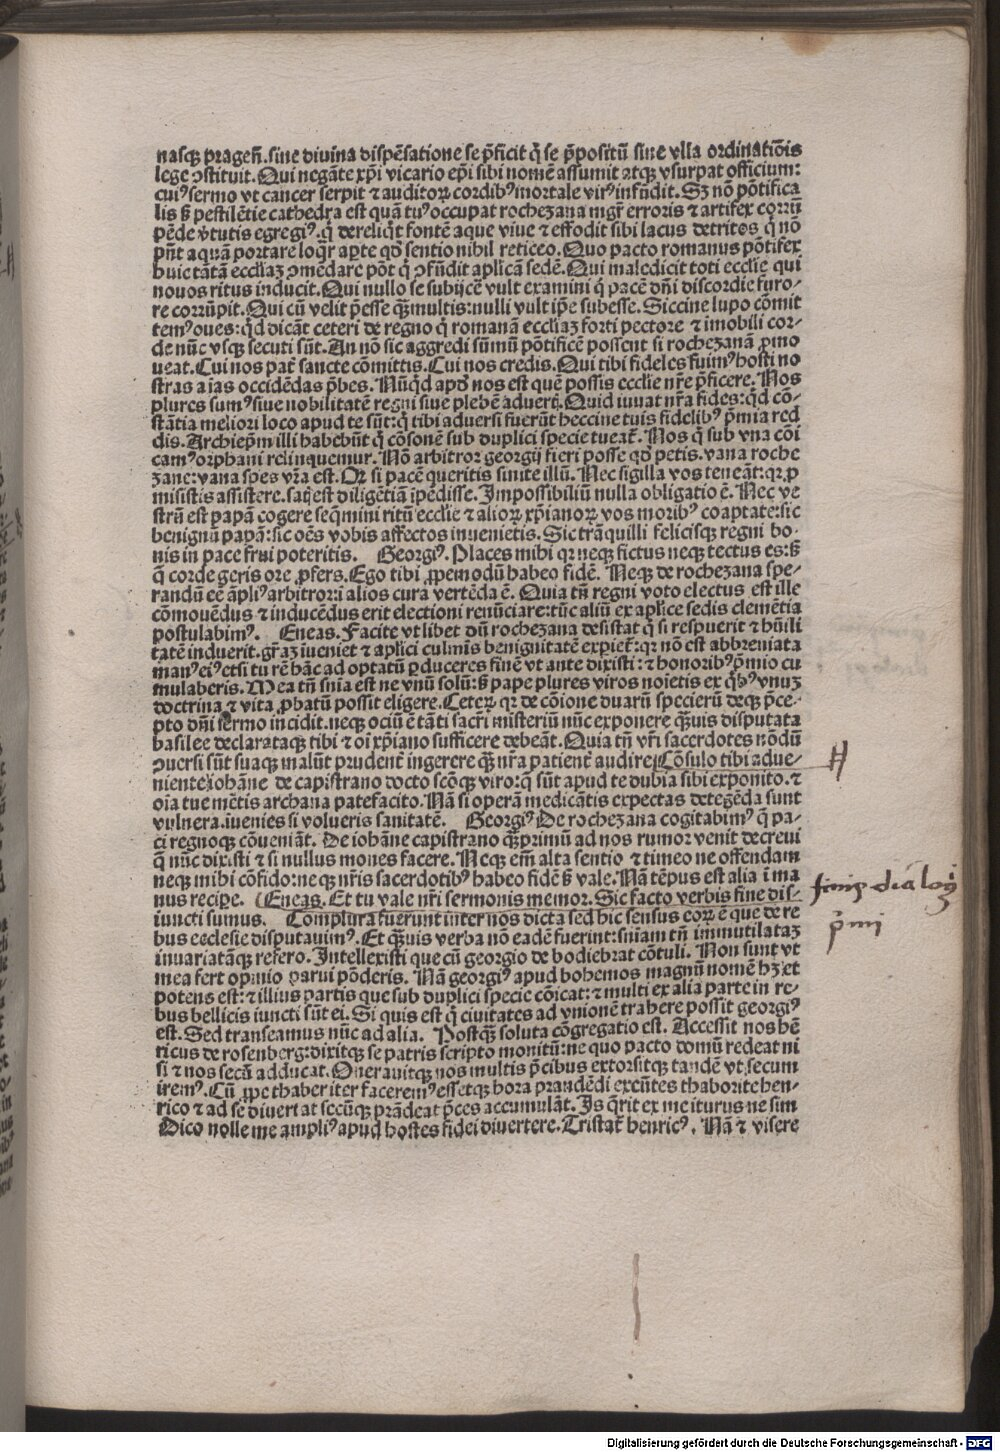 nasqꝫ pragen̄. sine diuina dispēsatione se p̄ficit q̇ se p̄positū sine vlla ordinatiōis
lege ꝯstituit. Qui negāte xp̄i vicario ep̄i sibi nomē assumit atqꝫ vsurpat officium:
cuiꝰ sermo vt cancer serpit ⁊ auditoꝝ cordibꝰ mortale virꝰ infūdit. Sꝫ nō pōtifica
lis ꝭ pestilētie cathedra est quā tuꝰ occupat rochezana mgr̄ erroris ⁊ artifex corrū
pēde v̓tutis egregiꝰ. q̇ dereliq̇t fontē aque viue ⁊ effodit sibi lacus detritos q̇ nō
pn̄t aquā portare loq̇r aꝑte qđ sentio nihil reticeo. Quo pacto romanus pōtifex
huic tātā eccliaꝫ ꝯmēdare pōt q̇ ꝯfūdit aplicā sedē. Qui maledicit toti ecclie qui
nouos ritus inducit. Qui nullo se subijcē vult examini q̇ pacē dn̄i discordie furo⸗
re corrūpit. Qui cū velit p̄esse qꝫ multis: nulli vult ip̄e subesse. Siccine lupo cōmit
temꝰ oues: q̇d dicāt ceteri de regno q̇ romanā eccliaꝫ forti pectore ⁊ imobili cor⸗
de nūc vsqꝫ secuti sūt. An nō sic aggredi sūmū pōtificē possent si rochezanā ꝓmo
ueat. Cui nos pat̄ sancte cōmittis. Cui nos credis. Qui tibi fideles fuimꝰ hosti no
stras aīas occidēdas p̄bes. Nūq̇d apđ nos est quē possis ecclie nr̄e p̄ficere. Nos
plures sumꝰ siue nobilitatē regni siue plebē aduert̄. Quid iuuat nr̄a fides: q̇d cō⸗
stātia meliori loco apud te sūt: q̇ tibi aduersi fuerūt heccine tuis fidelibꝰ p̄mia red
dis. Archiep̄m illi habebūt q̇ cōsonē sub duplici specie tueat̄. Nos q̇ sub vna cōi
camꝰ orphani relinquemur. Nō arbitror georgij fieri posse qđ petis. vana roche
zane: vana spes vr̄a est. Qr̄ si pacē queritis sinite illū. Nec sigilla vos teneāt: qꝛ ꝓ
misistis assistere. satꝭ est diligētiā īpēdisse. Impossibiliū nulla obligatio ē. Nec ve
strū est papā cogere seq̇mini ritū ecclie ⁊ alioꝝ xp̄ianoꝝ vos moribꝰ coaptate: sic
benignū papā: sic oēs vobis affectos inuenietis. Sic trāquilli felicisqꝫ regni bo⸗
nis in pace frui poteritis. Georgiꝰ. Places mihi qꝛ neqꝫ fictus neqꝫ tectus es: ꝭ
q̄ corde geris ore ꝓfers. Ego tibi ꝓpemodū habeo fidē. Neqꝫ de rochezana spe⸗
randū eē āpliꝰ arbitror: ī alios cura vertēda ē. Quia tn̄ regni voto electus est ille
cōmouēdus ⁊ inducēdus erit electioni renūciare: tūc aliū ex aplice sedis clemētia
postulabimꝰ. Eneas. Facite vt libet dū rochezana desistat q̇ si respuerit ⁊ hūili
tatē induerit. gr̄aꝫ iueniet ⁊ aplici culmīs benignitatē expiet̄: qꝛ nō est abbreuiata
manꝰ eiꝰ etsi tu rē hāc ad optatū ꝑduceres finē vt ante dixisti: ⁊ honoribꝰ p̄mio cu
mulaberis. Mea tn̄ snīa est ne vnū solū: ꝭ pape plures viros noīetis ex q̇bꝰ vnuꝫ
doctrina ⁊ vita ꝓbatū possit eligere. Ceteꝝ qꝛ de cōione duarū specierū deqꝫ p̄ce⸗
pto dn̄i sermo incidit. neqꝫ ociū ē tāti sacr̄i misteriū nūc exponere qꝫuis disputata
basilee declarataqꝫ tibi ⁊ oī xp̄iano sufficere debeāt. Quia tn̄ vr̄i sacerdotes nōdū
ꝯuersi sūt suaqꝫ malūt prudent̄ ingerere qꝫ nr̄a patient̄ audire. Cōsulo tibi adue⸗
niente iohāne de capistrano docto scōqꝫ viro: q̇ sūt apud te dubia sibi exponito. ⁊
oīa tue mētis archana patefacito. Nā si operā medicātis expectas detegēda sunt
vulnera. īuenies si volueris sanitatē. Georgiꝰ De rochezana cogitabimꝰ q̄ pa⸗
ci regnoqꝫ cōueniāt. De iohāne capistrano qꝫprimū ad nos rumor venit decreui
q̄ nūc dixisti ⁊ si nullus mones facere. Neqꝫ em̄ alta sentio ⁊ timeo ne offendam
neqꝫ mihi cōfido: neqꝫ nr̄is sacerdotibꝰ habeo fidē ꝭ vale. Nā tēpus est alia ī ma
nus recipe. Eneas. Et tu vale nr̄i sermonis memor. Sic facto verbis fine dis⸗
iuncti sumus. Complura fuerunt inter nos dicta sed hic sensus coꝝ ē que de re
bus ecclesie disputauimꝰ. Et qꝫuis verba nō eadē fuerint: sn̄iam tn̄ immutilataꝫ
inuariatāqꝫ refero. Intellexisti que cū georgio de bodiebrat cōtuli. Non sunt vt
mea fert opinio parui pōderis. Nā georgiꝰ apud bohemos magnū nomē hꝫ et
potens est: ⁊ illius partis que sub duplici specie cōicat: ⁊ multi ex alia parte in re⸗
bus bellicis iuncti sūt ei. Si quis est q̇ ciuitates ad vnionē trahere possit georgiꝰ
est. Sed transeamus nūc ad alia. Postqꝫ soluta cōgregatio est. Accessit nos hē
ricus de rosenberg: dixitqꝫ se patris scripto monitū: ne quo pacto domū redeat ni
si ⁊ nos secū adducat. Onerauitqꝫ nos multis p̄cibus extorsitqꝫ tandē vt secum
iremꝰ. Cū ꝓpe thaber iter faceremꝰ essetqꝫ hora prandēdi exeūtes thaborite hen⸗
rico ⁊ ad se diuertat secūqꝫ prādeat p̄ces accumulāt. Is q̄rit ex me iturus ne sim
Dico nolle me ampliꝰ apud hostes fidei diuertere. Tristat̄ henricꝰ. Nā ⁊ visere
finis dialogi
p̄mi
Digitalisierung gefördert durch die Deutsche Forschungsgemeinschaft - DFG